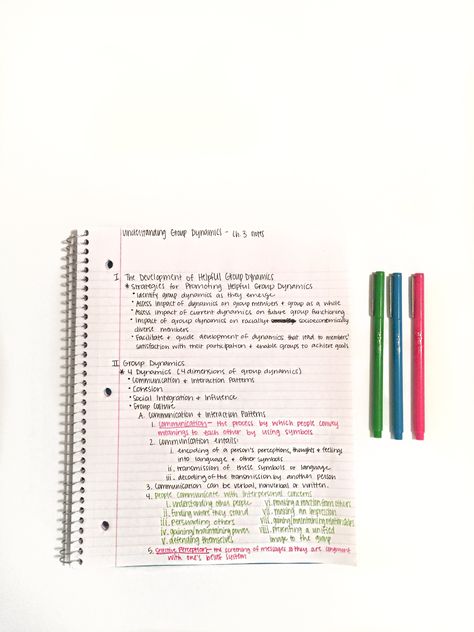 Understanding Group Dynamics - Ch. 3 notes
I. The Development of Helpful Group Dynamics
* Strategies for Promoting Helpful Group Dynamics
• Identify group dynamics as they emerge
• Assess impact of dynamics on group members + group as a whole
• Assess impact of current dynamics on future group functioning
• Impact of group dynamics on racially + socioeconomically
diverse members
• Facilitate + guide development of dynamics that lead to members'
satisfaction with their participation + enable groups to achieve goals
II. Group Dynamics
* 4 Dynamics (4 dimensions of group dynamics)
• Communication + Interaction Patterns
• Cohesion
• Social Integration + Influence
• Group Culture
A. Communication + Interaction Patterns
1. Communication - the process by which people convey
meanings to each other by using symbols
2. Communication entails:
i. encoding of a person's perceptions, thoughts + feelings
into language + other symbols
ii. transmission of these symbols or language
iii. decoding of the transmission by another person
3. Communication can be verbal, nonverbal or written.
4. People communicate with interpersonal concerns
i. understanding other people
ii. finding where they stand
iii. persuading others
iv. gaining/maintaining power
v. defending themselves
vi. provoking a reaction from others
vii. making an impression
viii. gaining/maintaining relationships
viiii. presenting a unified
image to the group
5. Selective Perception - the screening of messages so they are congruent
with one's belief system